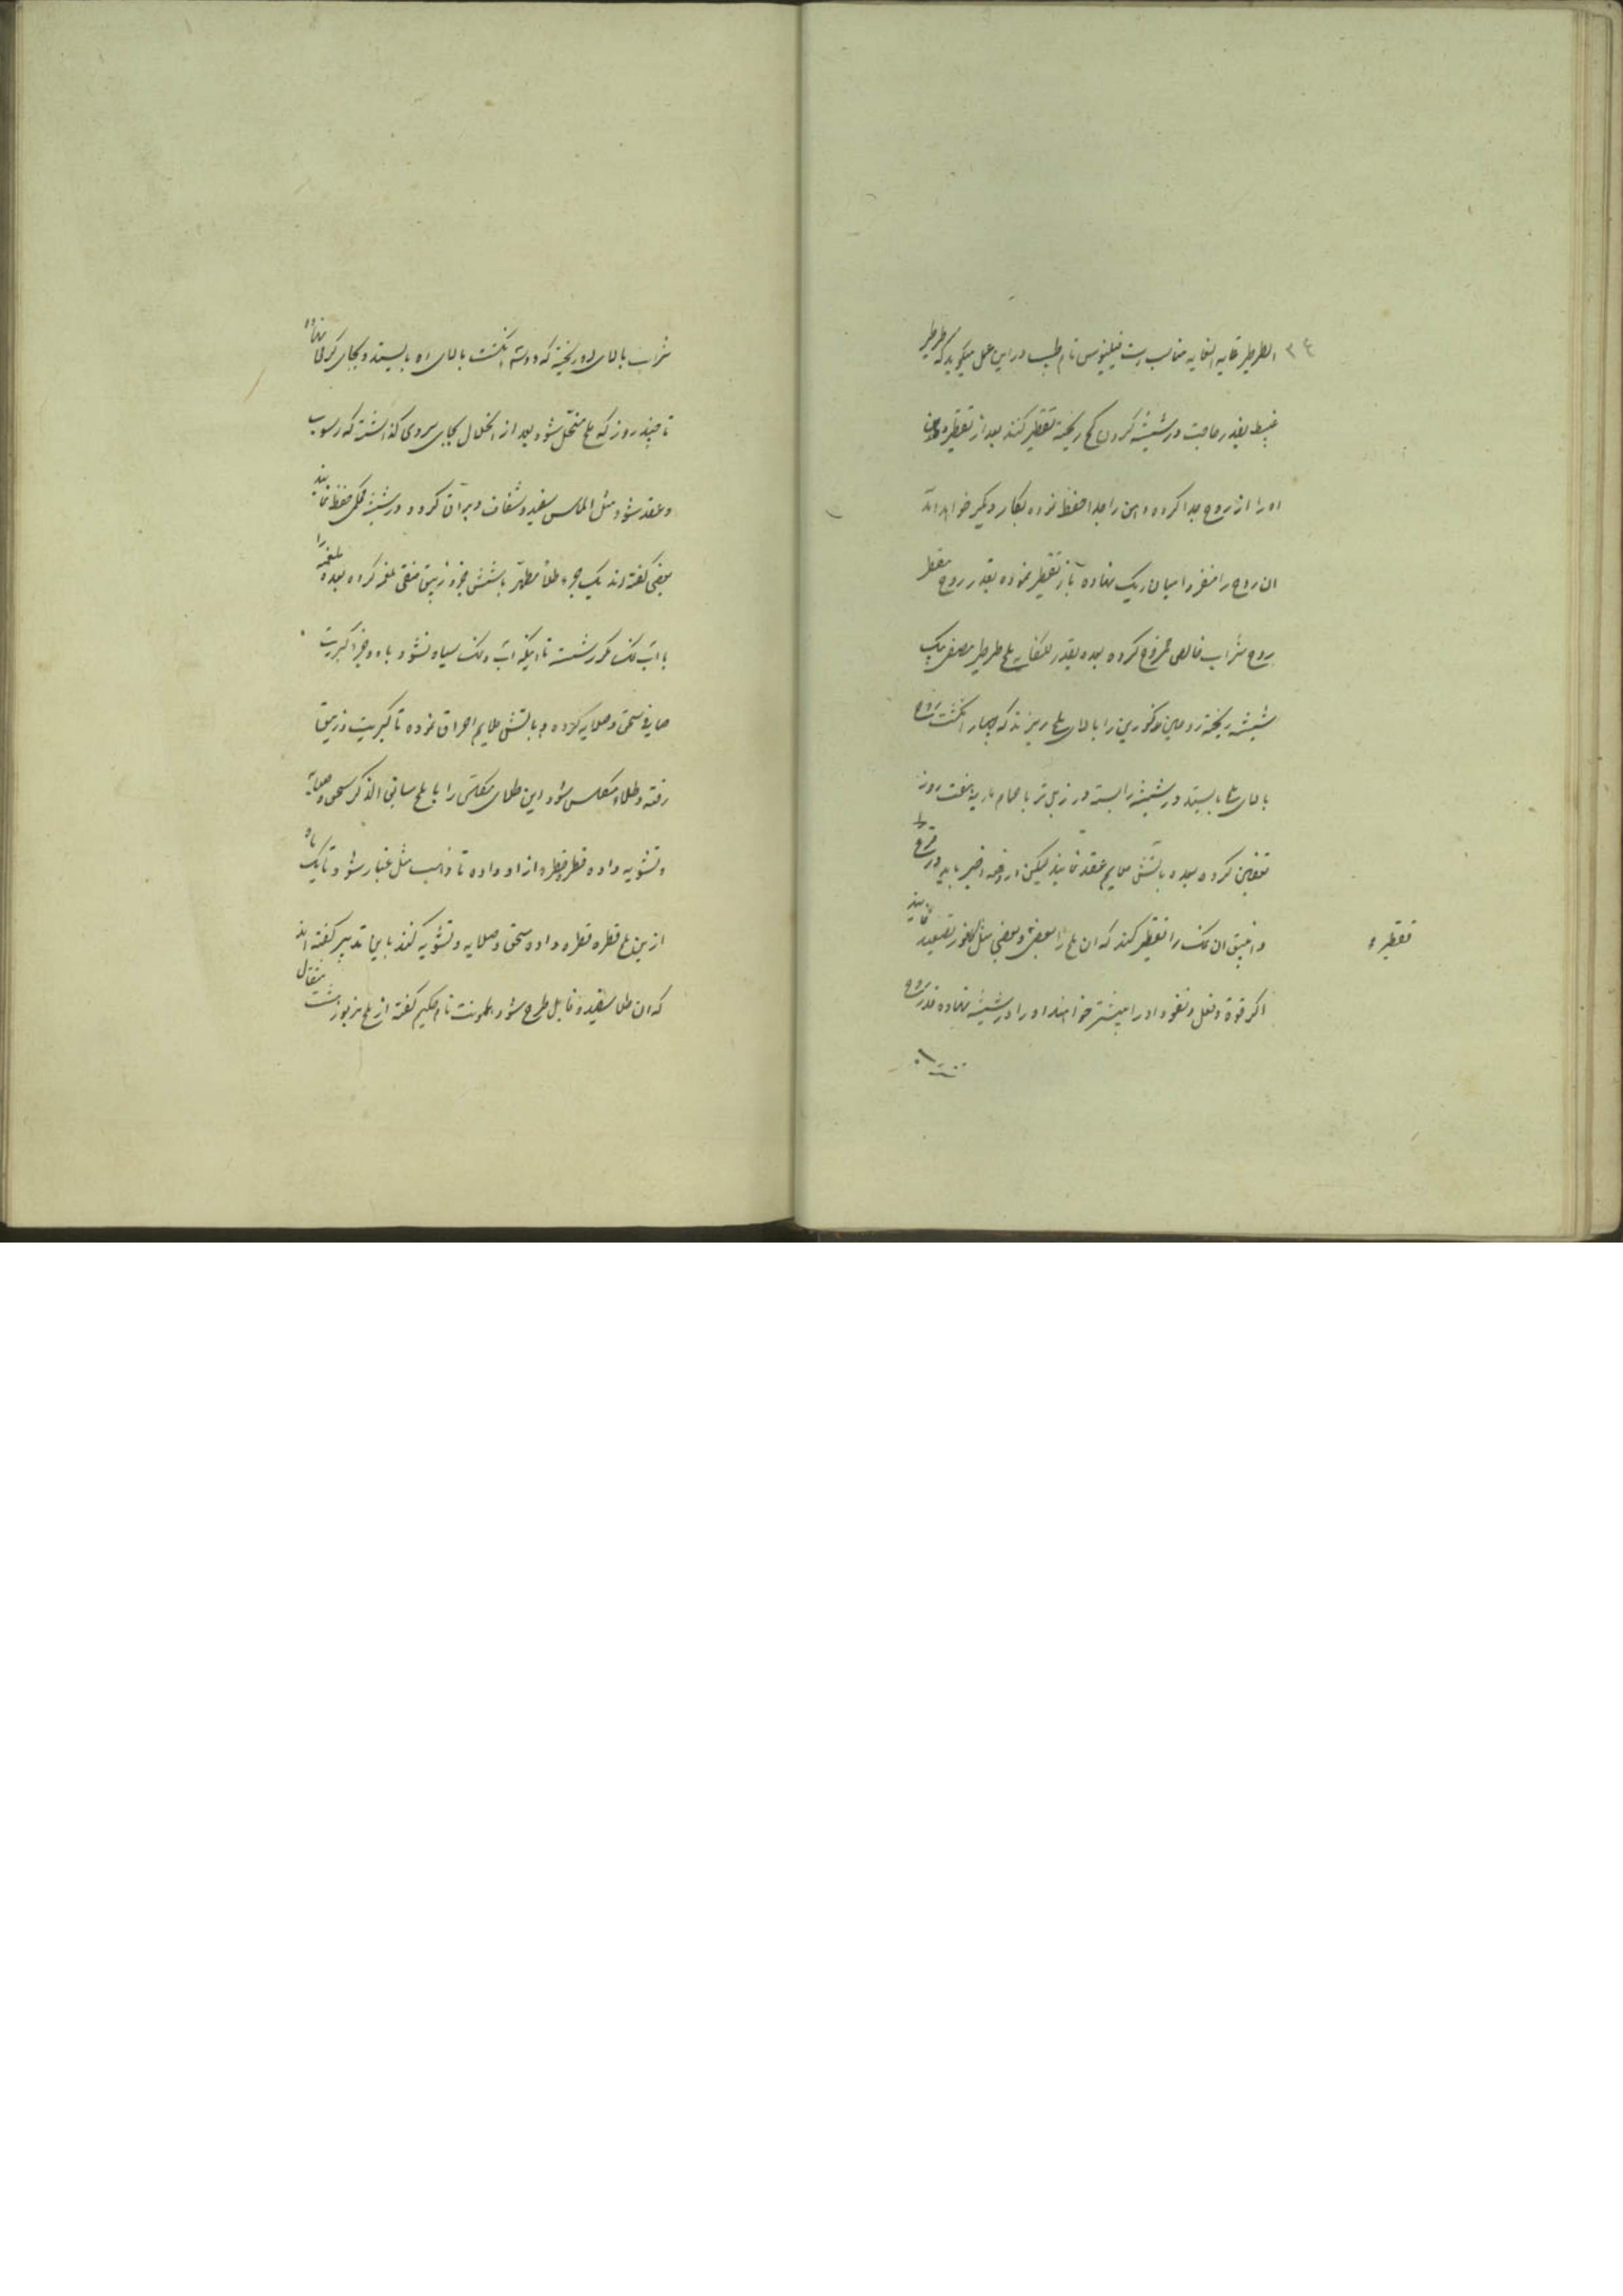 ٣٤ الطرطیر غایه الغایه مناسب است فیلینوس نام طبیب در این عمل میکوید که طرطیر
ضبط بقدر حاجت در شیشه کردن کج ریخته تقطیر کنند بعد از تقطیر
او را از روح جدا کرده دهن را جدا حفظ نموده بکار دیکر خواهد آمد
ان روح را منفردا میان ریک نهاده باز تقطیر نموده بقدر روح مقطر
روح شراب خالص ممزوج کرده بعده بقدر ملح طرطیر مصفی بیک
شیشه ریخته روحین مذکورین را بالای ملح ریزند که چهار انکشت روح
بالای ملح بایستد در شیشه را بسته در زبل تر یا حمام ماریه هفت روز
تعفین کرده بعده باتش ملایم عقد نمایند لیکن در دفعه اخیر باید در قرع
و انبیق ان نمک را تقطیر کنند که ان ملح را بعضی و بعضی مثل کافور تصعید نمایند
تقطیر
اکر قوة و فعل و نفوذ او را بیشتر خواهند او را در شیشه نهاده قدر روح
شراب
شراب بالای او ریخته که دو سه انکشت بالای او بایستد و بجای کرم نهاده
تا چند روز که ملح منحل شود بعد از انحلال بجای سردی کذاشته که رسوب
و عقد شود مثل الماس سفید و شفاف و براق کردد در شیشه محکم حفظ نمایند
بعضی کفته اند یک جزء طلاء مطهر با شش جزء زیبق منقی ملغمه کرده بعده ملغمه را
با اب نمک مکرر شسته تا اینکه اب و نمک سیاه نشود با دو جزء کبریت
صافی سحق و صلایه کرده و باتش ملایم احراق نموده تا کبریت و زیبق
رفته و طلاء مکلس شود این طلای مکلس را با ملح سابق الذکر سحق و صلایه
و تشویه داده قطره قطره از او داده تا ذهب مثل غبار شود و تا یک ماه
ازین ملح قطره قطره داده سحق و صلایه و تشویه کنند باین تدبیر کفته اند
که ان طلا سفید و قابل طرح شود نام حکیم کفته از ملح مزبور هشت مثقال